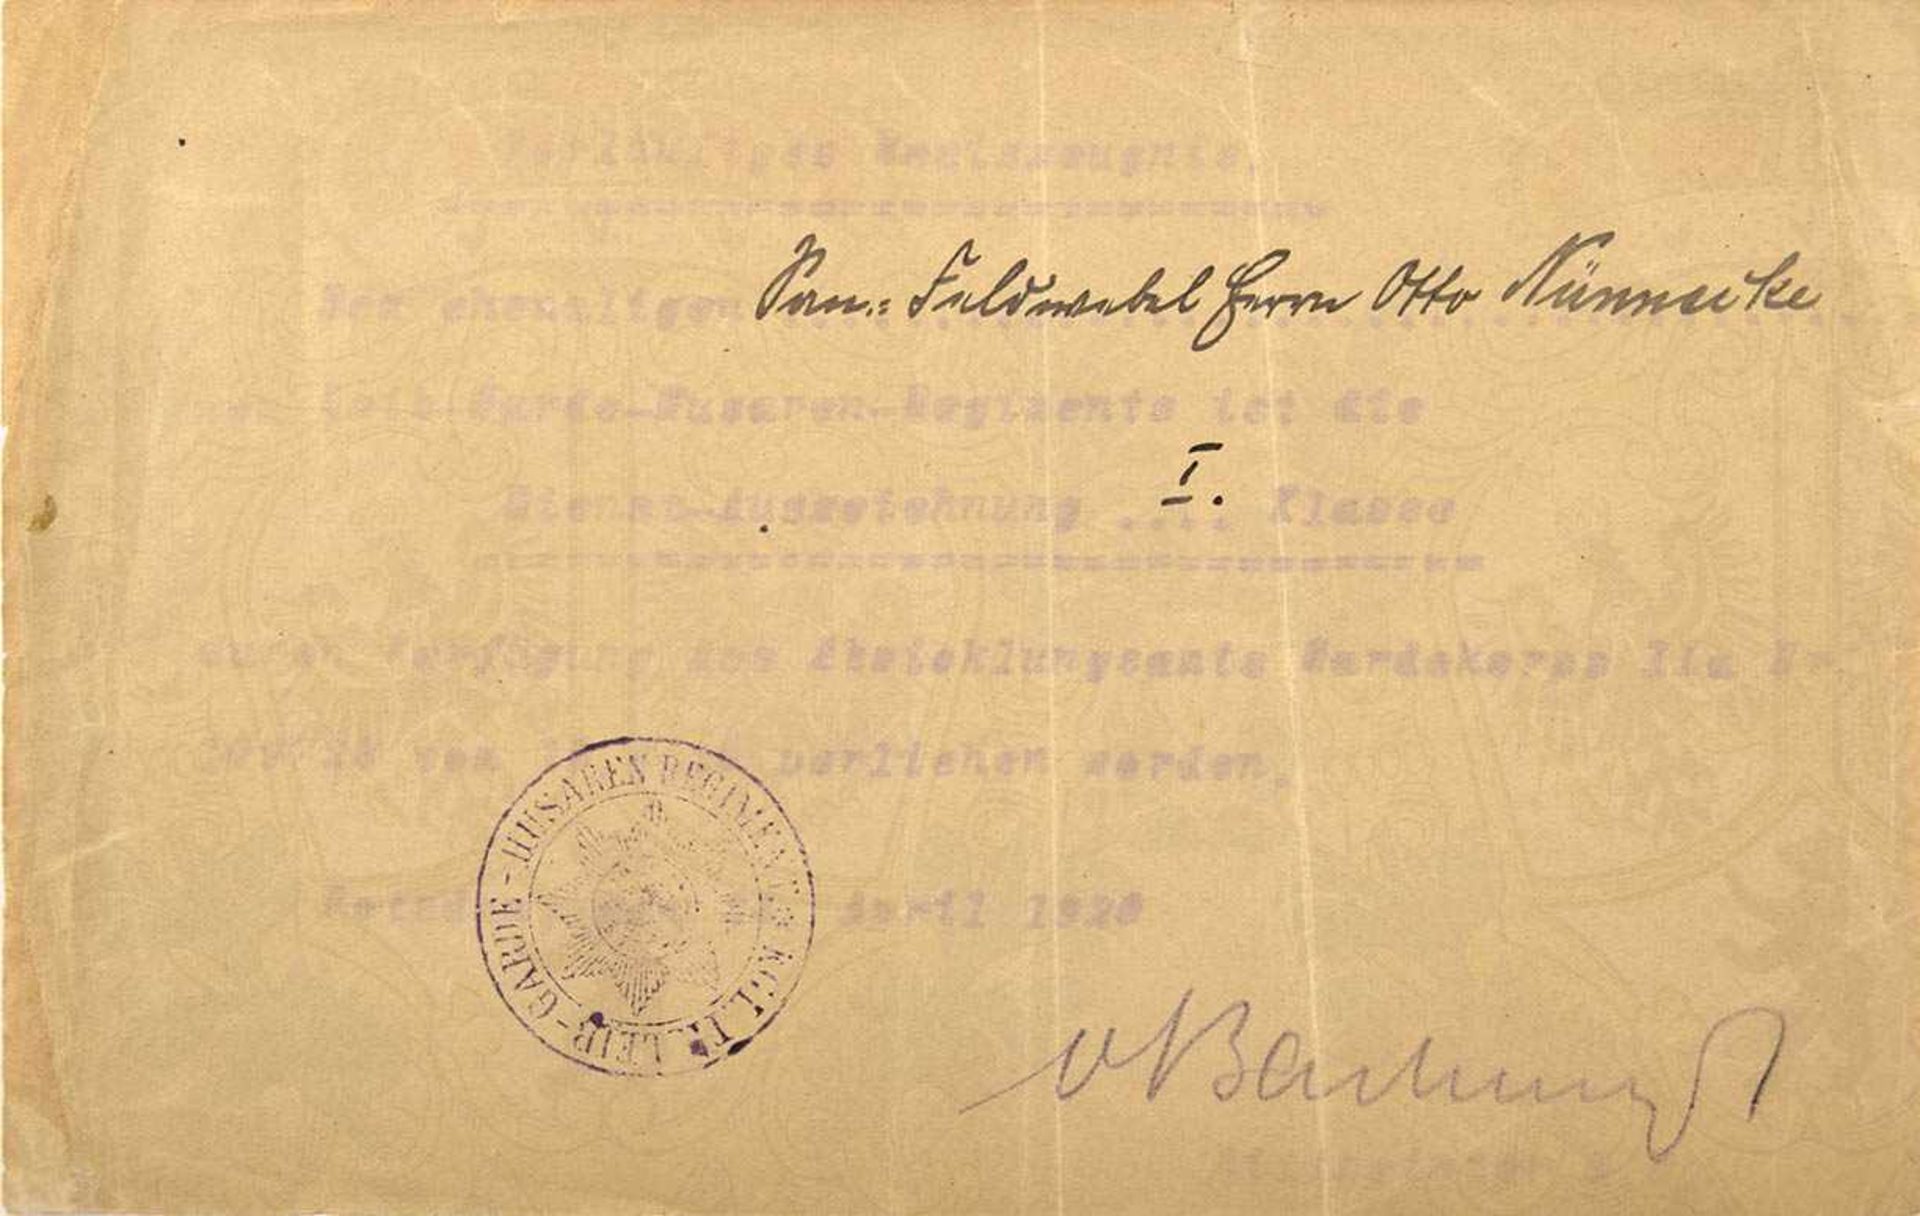 Vorläufiges Besitzzeugnis.
Dem ehemaligen San.: Feldwebel Herrn Otto Nünnecke
Leib-Garde-Husaren-Regiments ist die
Dienst-Auszeichnung I. Klasse
durch Verfügung des Abwicklungsamts Gardekorps IIa
vom verliehen worden.
April 1920
LEIB-GARDE-HUSAREN REGIMENTS KGL. PR.